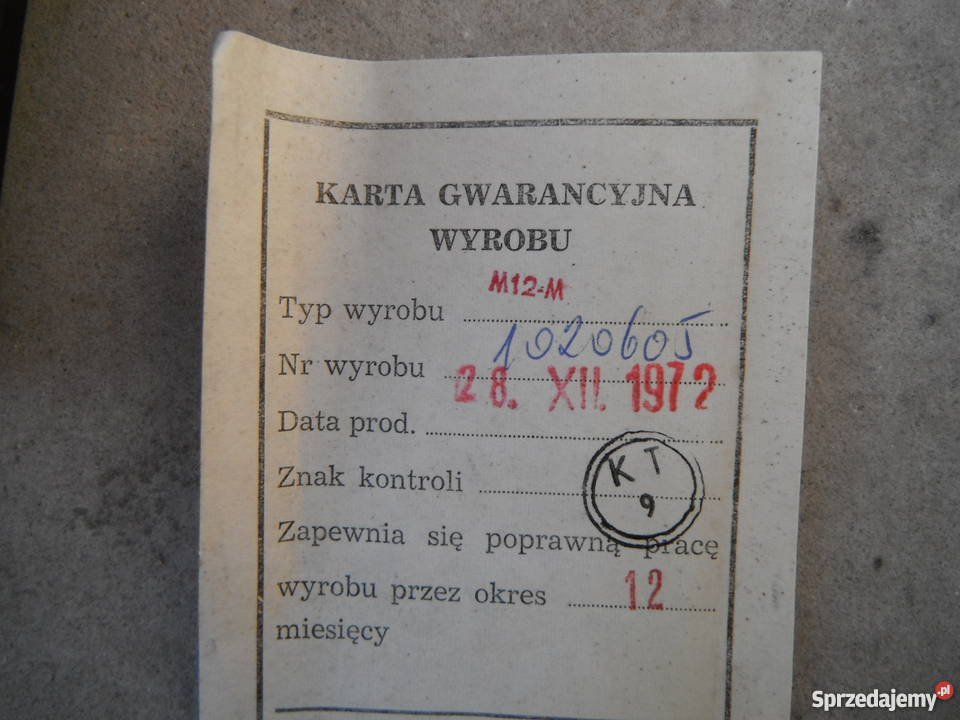 KARTA GWARANCYJNA
WYROBU
Typ wyrobu M12-M
Nr wyrobu 1020605
Data prod. 28. XII. 1972
Znak kontroli KT 9
Zapewnia się poprawną pracę
wyrobu przez okres 12
miesięcy
Sprzedajemy.pl